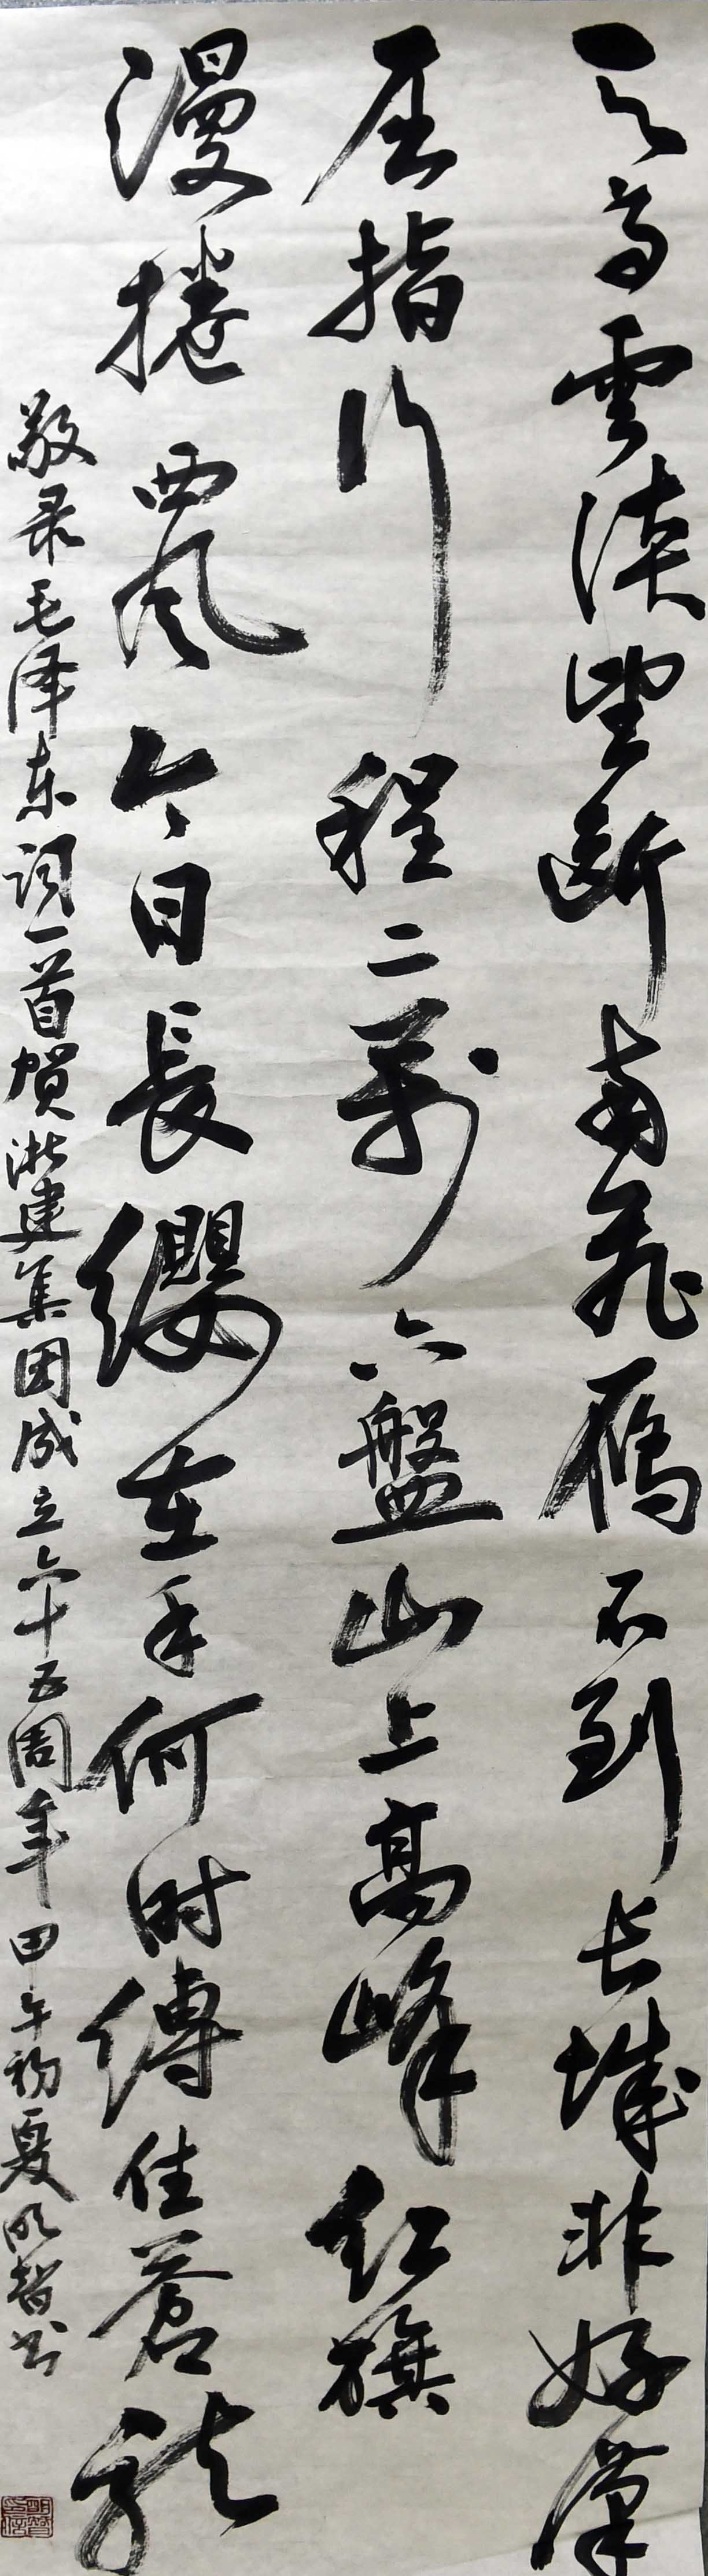 天高雲淡望斷南飛雁不到长城非好漢
屈指行程二萬六盤山上高峰红旗
漫捲西风今日長纓在手何时縛住蒼龙
敬录毛泽东词一首贺浙建集团成立六十五周年甲午初夏明智书